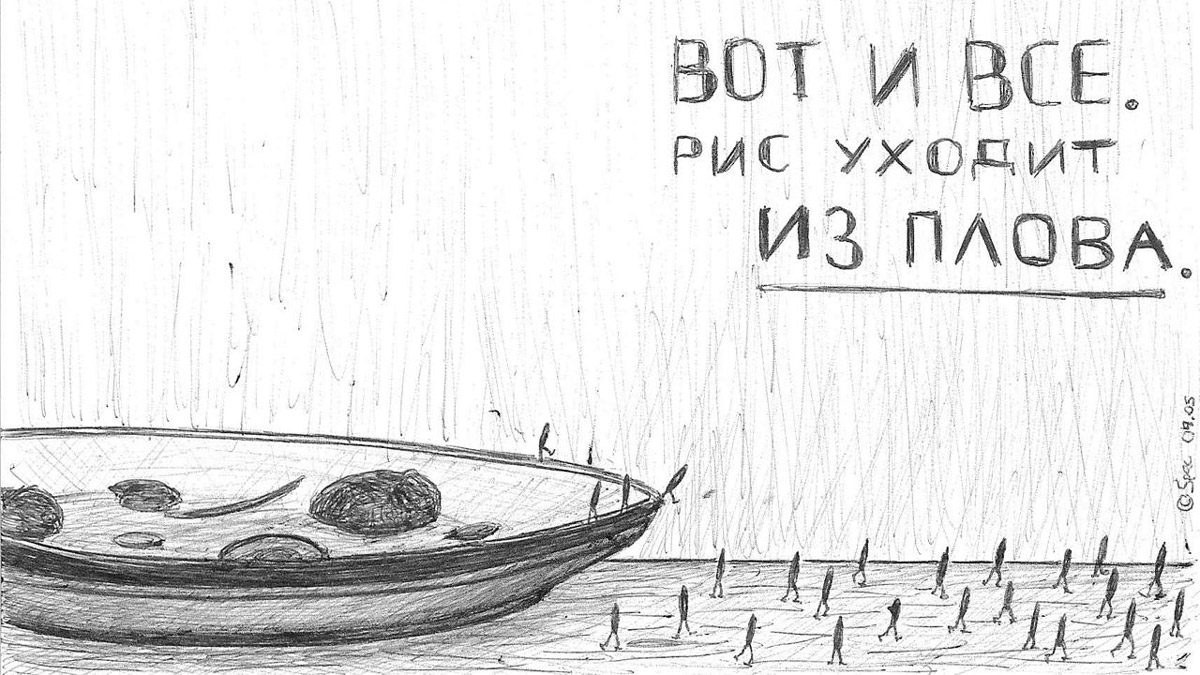 ВОТ И ВСЕ.
РИС УХОДИТ
ИЗ ПЛОВА.
©Spec 09.05